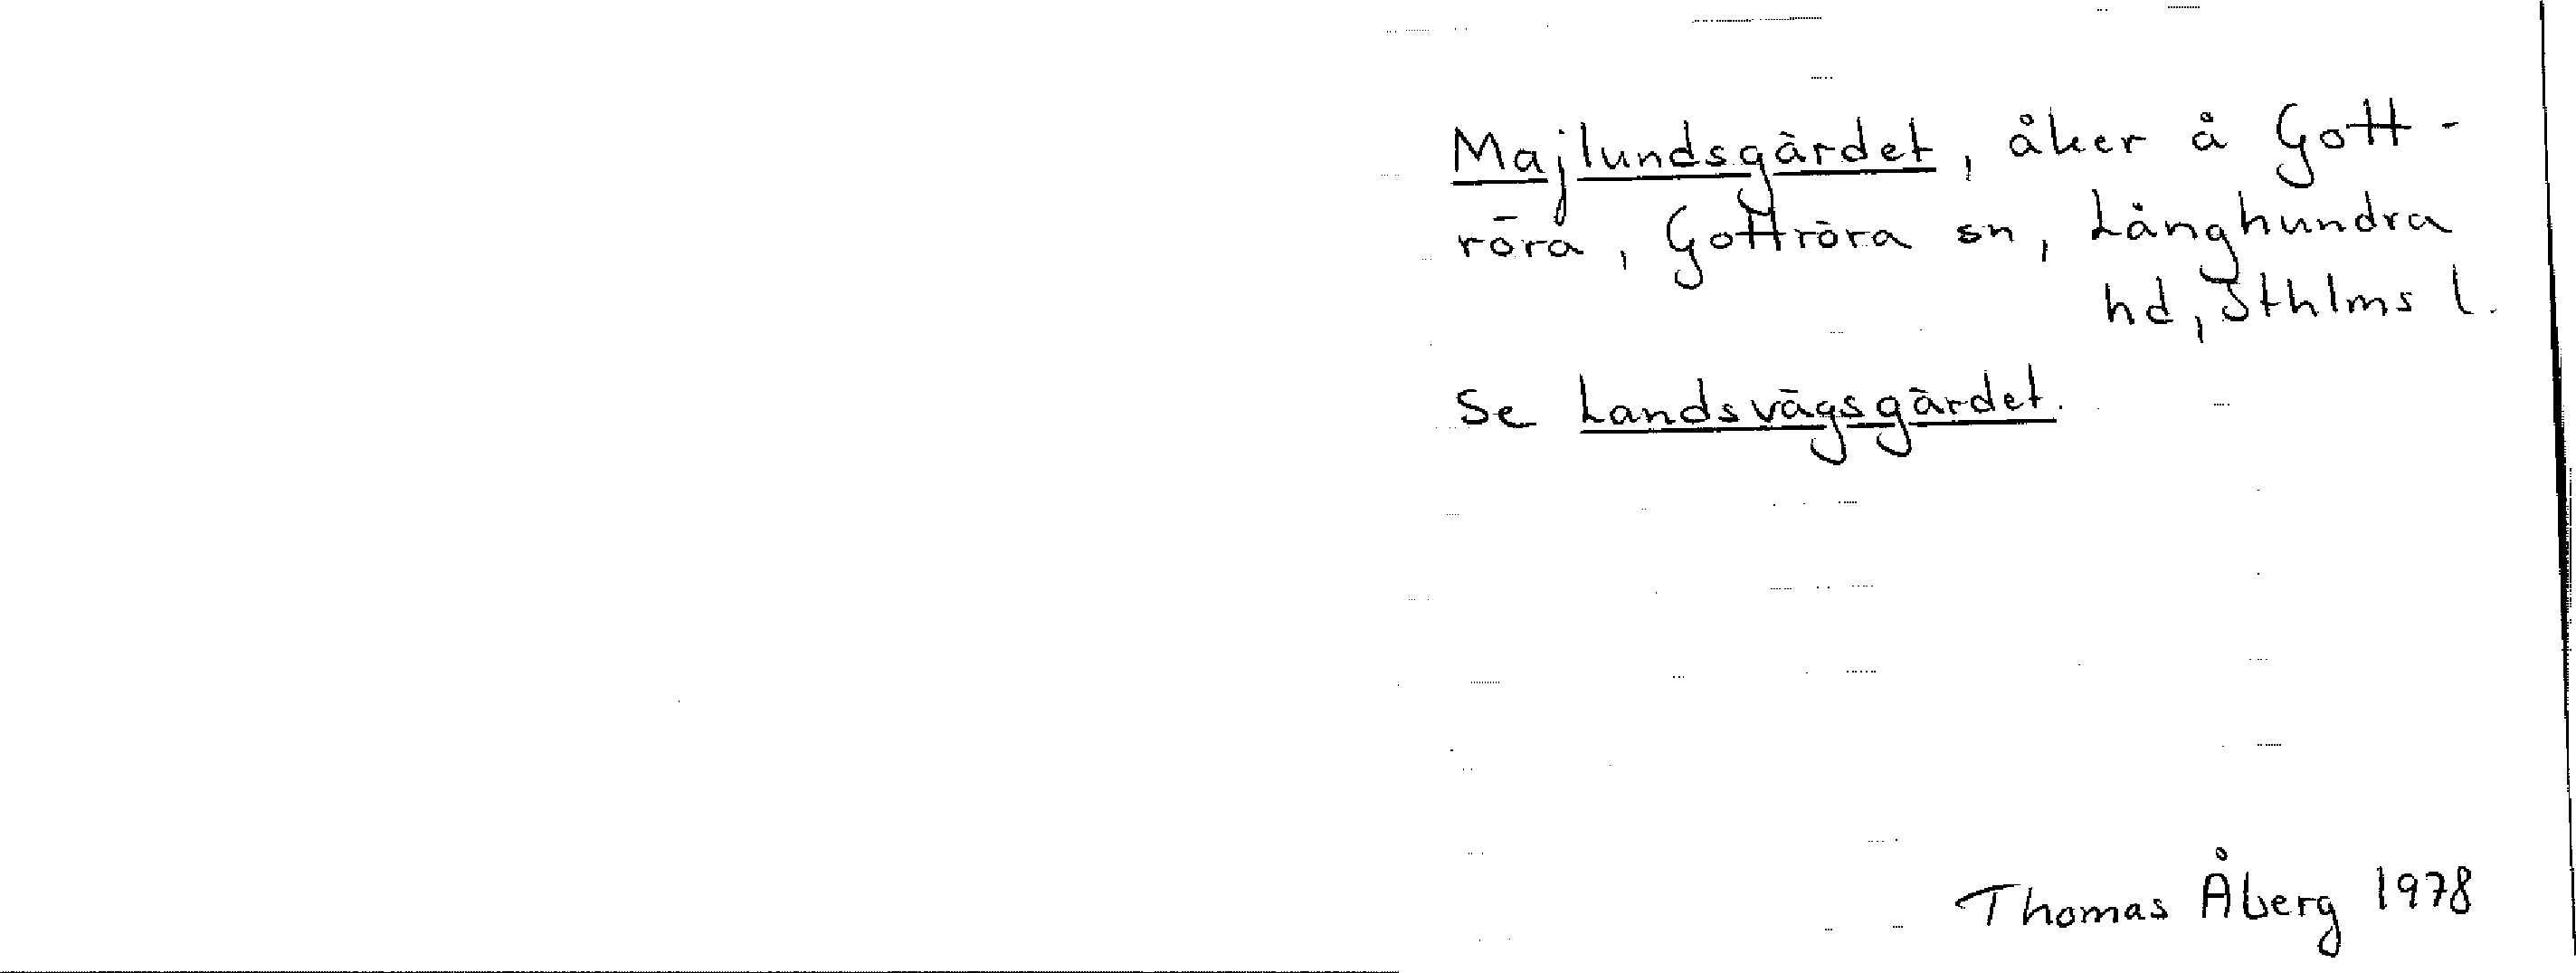 Majlundsgärdet, åker å Gott-
röra, Gottröra sn, Långhundra
hd, Sthlms l.
Se Landsvägsgärdet.
Thomas Åberg 1978